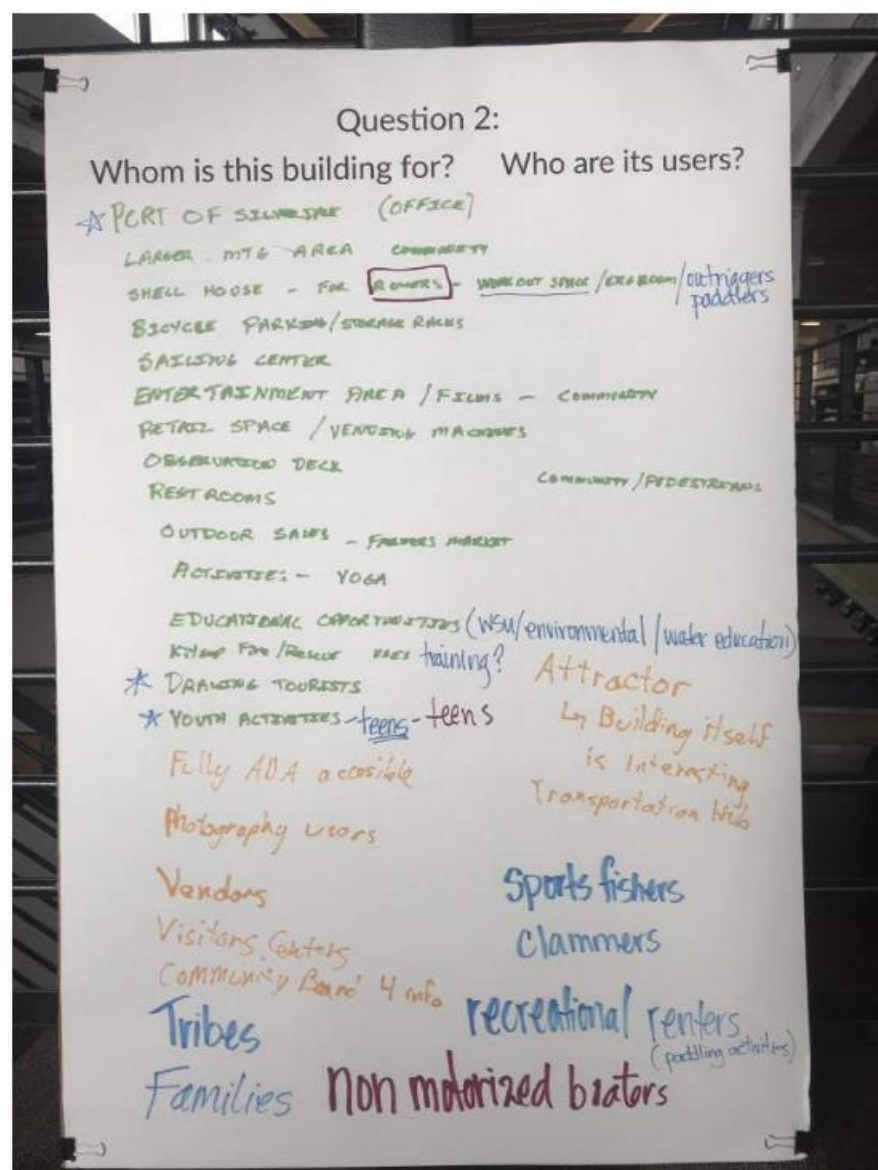 Question 2:
Whom is this building for? Who are its users?
☆ PORT OF SILVERDALE (OFFICE)
LARGER MTG AREA COMMUNITY
SHELL HOUSE - FOR ROWERS - WORKOUT SPACE / ERG ROOM / outriggers paddlers
BICYCLE PARKING/STORAGE RACKS
SAILING CENTER
ENTERTAINMENT AREA / FILMS - COMMUNITY
RETAIL SPACE / VENDING MACHINES
OBSERVATION DECK
COMMUNITY/PEDESTRIANS
RESTROOMS
OUTDOOR SALES - FARMERS MARKET
ACTIVITIES - YOGA
EDUCATIONAL OPPORTUNITIES (WSU/environmental/water education)
Kitsap Fire/Rescue USES training?
* DRAWING TOURISTS
* YOUTH ACTIVITIES - teens - teens
Attractor
↳ Building itself
is Interesting
Transportation Hub
Fully ADA accesible
Photography users
Vendors
Visitors Centers
Community Board 4 info
Sports fishers
Clammers
Tribes
recreational renters
(paddling activities)
Families
non motorized boaters